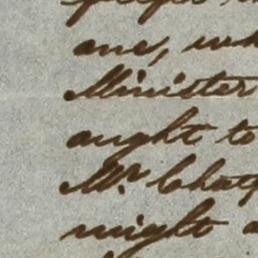 one, wh
Minister
ought to
Mr. Chat
might a